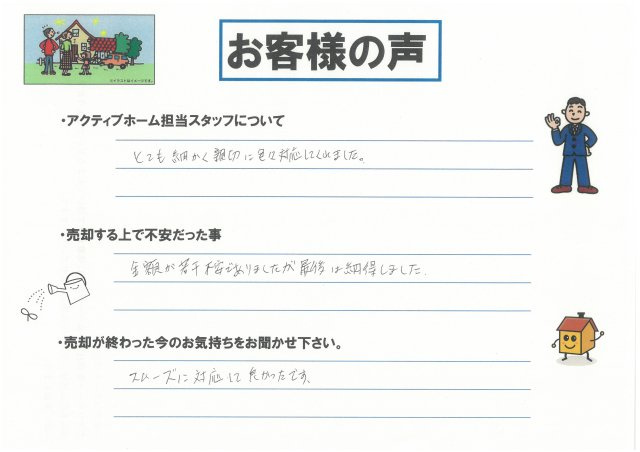 お客様の声
※イラストはイメージです。
・アクティブホーム担当スタッフについて
とても細かく親切に色々対応してくれました。
・売却する上で不安だった事
金額が若干不安でありましたが最後は納得しました.
・売却が終わった今のお気持ちをお聞かせ下さい。
スムーズに対応して良かったです。